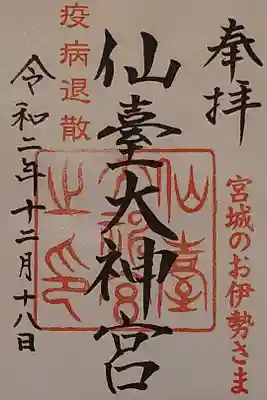 奉拝
宮城のお伊勢さま
仙臺大神宮
仙臺大神宮之印
疫病退散
令和二年十二月十八日